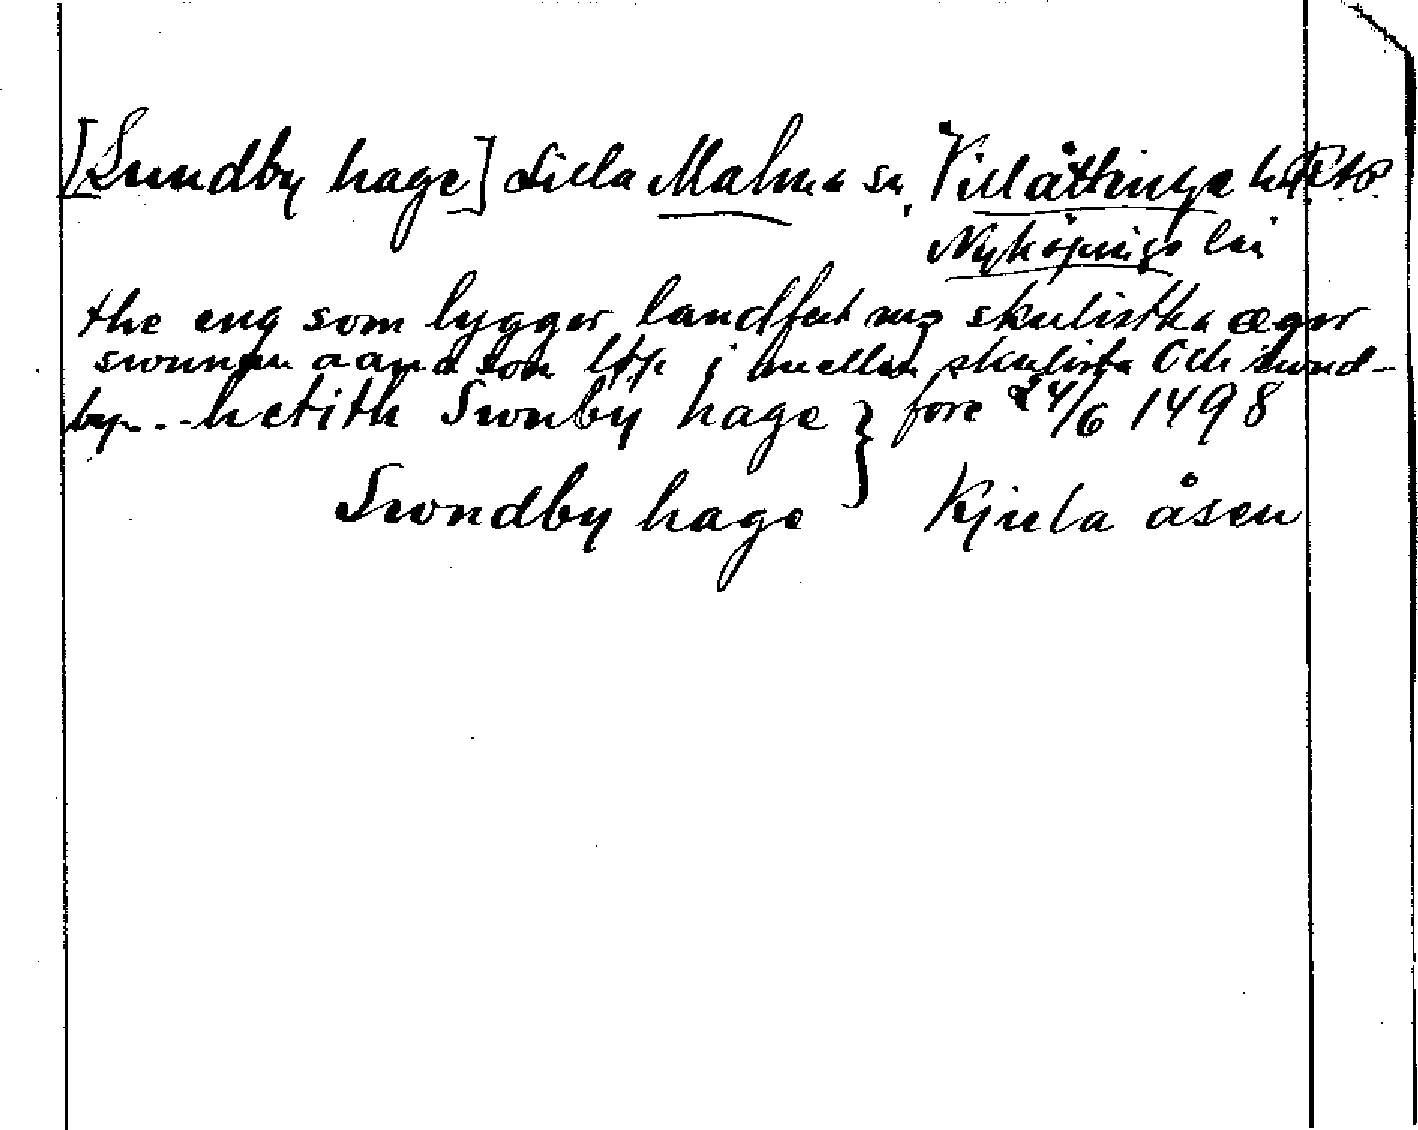 [Sundby hage] Lilla Malma sn, Villåttinge hd
Nyköpings län
the eng som lygger landfast mz skulistha æger
swnnan aana som löp i mellan skulista Och swnd-
by... hetith Swnby hage } före 24/6 1498
Swndby hage Kjula åsen